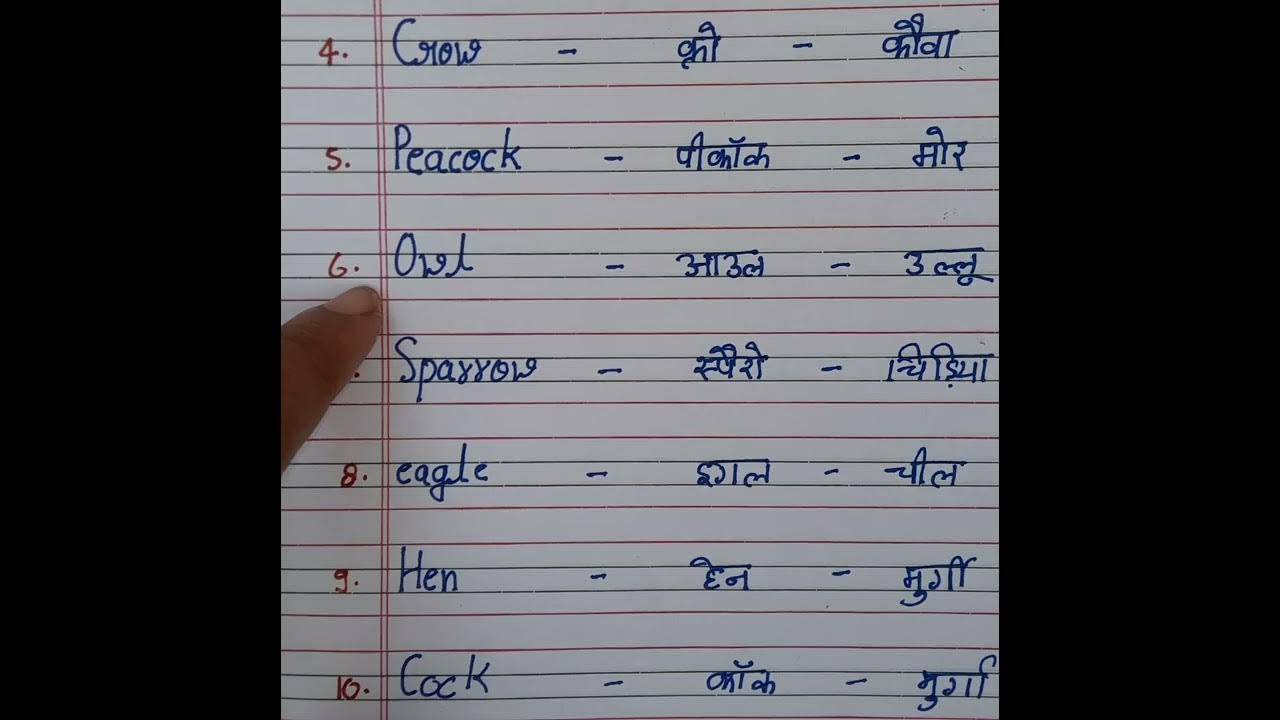 4. Crow - क्रो - कौवा
5. Peacock - पीकॉक - मोर
6. Owl - आउल - उल्लू
. Sparrow - स्पैरो - चिड़िया
8. eagle - इगल - चील
9. Hen - हेन - मुर्गी
10. Cock - कॉक - मुर्गा